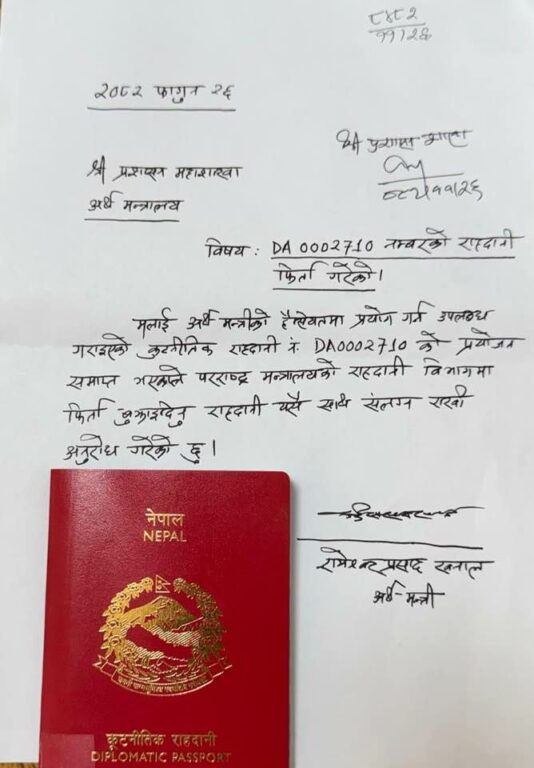 २०८२ फागुन २६
श्री प्रशासन महाशाखा
अर्थ मन्त्रालय
विषय : DA 0002710 नम्बरको राहदानी
फिर्ता गरेको।
मलाई अर्थ मन्त्रीको हैसियतमा प्रयोग गर्न उपलब्ध
गराइएको कुटनीतिक राहदानी नं DA0002710 को प्रयोजन
समाप्त भएकोले परराष्ट्र मन्त्रालयको राहदानी विभागमा
फिर्ता बुझाइदिनु राहदानी यसै साथ संलग्न राखी
अनुरोध गरेको छु।
रामेश्वर प्रसाद खनाल
अर्थ-मन्त्री
नेपाल
NEPAL
कूटनीतिक राहदानी
DIPLOMATIC PASSPORT